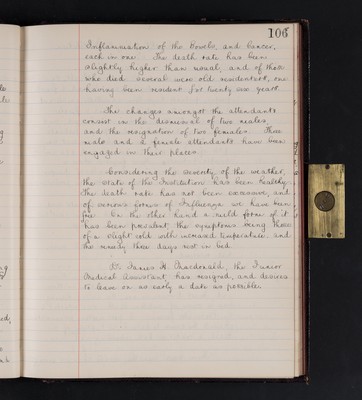 106
Inflammation of the Bowels, and Cancer,
each in one. The death rate has been
slightly higher than usual, and of those
who died several were old residenters, one
having been resident for twenty six years.
The changes amongst the attendants
consist in the dismissal of two males,
and the resignation of two females. Three
males and a female attendants have been
engaged in their places.
Considering the severity of the weather,
the state of the Institution has been healthy.
The death rate has not been excessive, and
of serious forms of Influenza we have been
free. On the other hand a mild form of it
has been prevalent, the symptoms being those
of a slight cold with increased temperature, and
two or three days rest in bed.
Dr. James H. Macdonald, the Junior
Medical Assistant, has resigned, and desires
to leave on as early a date as possible.